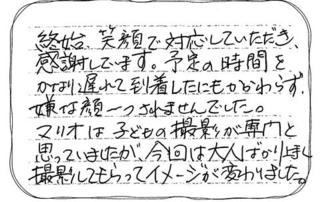 終始、笑顔で対応していただき、
感謝しています。予定の時間を
かなり遅れて到着したにもかかわらず、
嫌な顔一つされませんでした。
マリオは子どもの撮影が専門と
思っていましたが、今回は大人ばかり
撮影してもらってイメージが変わりました。